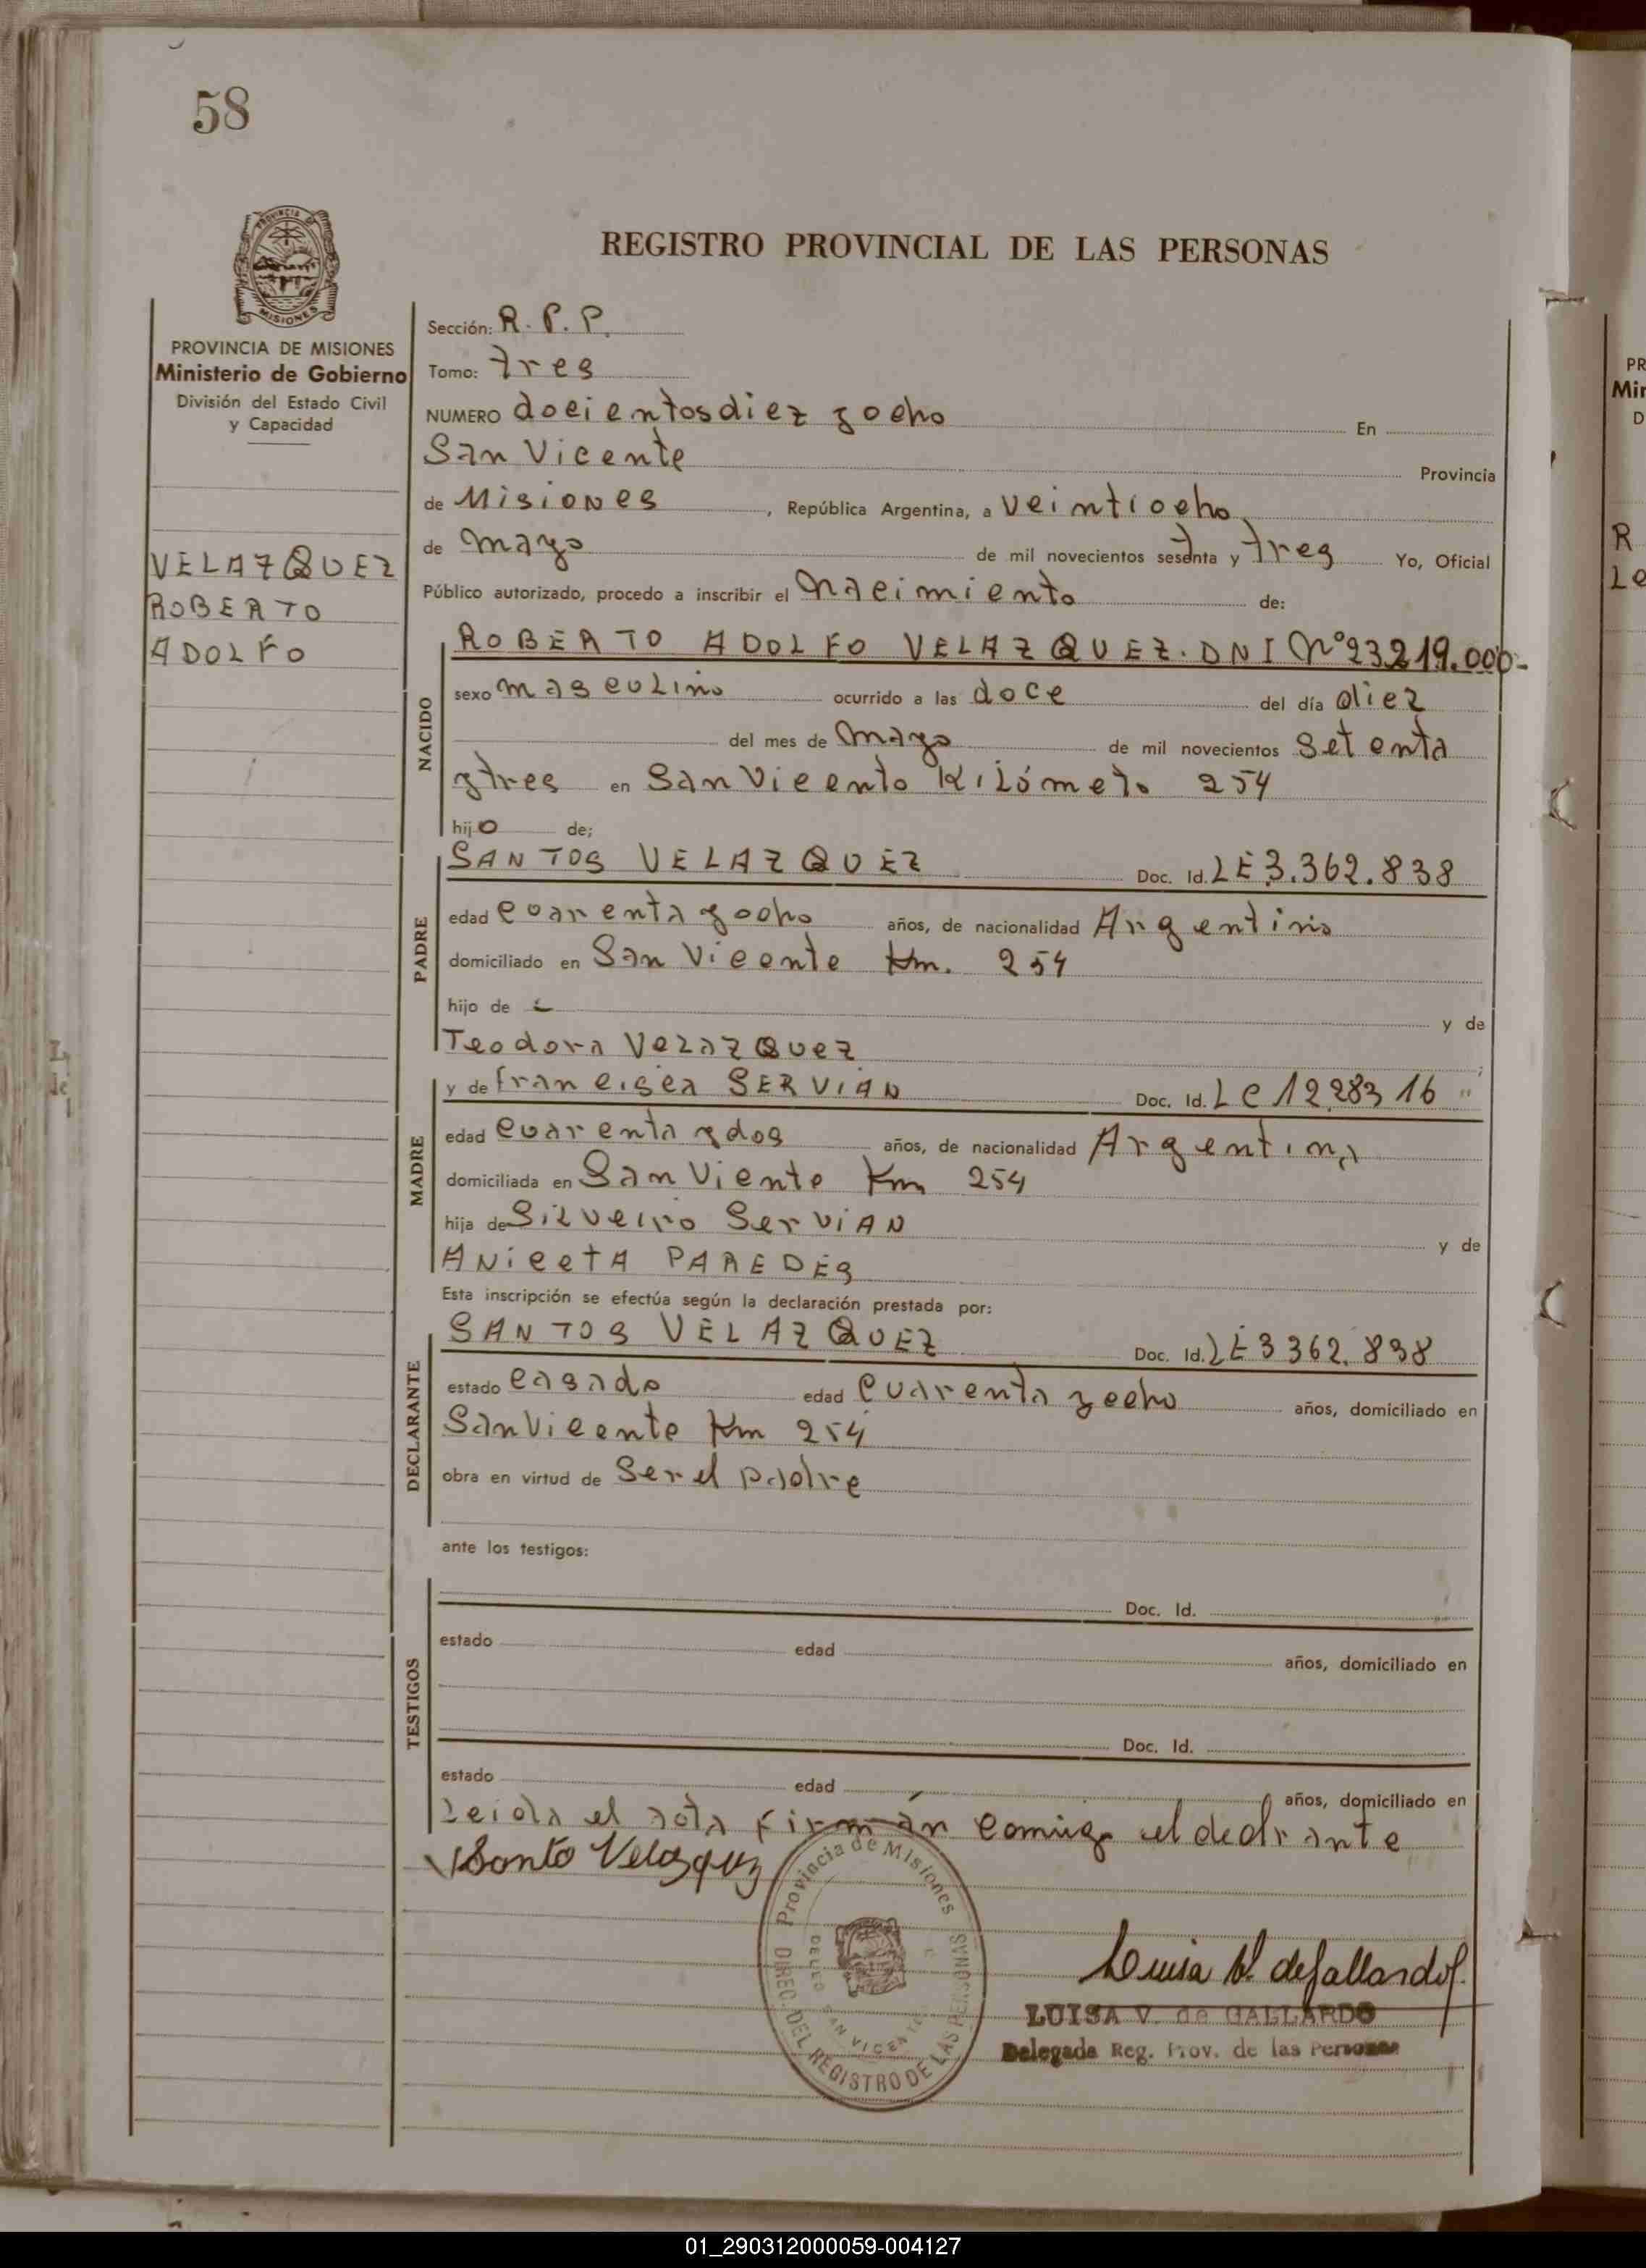 58
PROVINCIA DE
MISIONES
REGISTRO PROVINCIAL DE LAS PERSONAS
PROVINCIA DE MISIONES
Ministerio de Gobierno
División del Estado Civil
y Capacidad
VELAZQUEZ
ROBERTO
ADOLFO
Sección: R. P. P.
Tomo: tres
NUMERO docientos diez y ocho En
San Vicente Provincia
de Misiones, República Argentina, a veintiocho
de mayo de mil novecientos setenta y tres Yo, Oficial
Público autorizado, procedo a inscribir el nacimiento de:
NACIDO
ROBERTO ADOLFO VELAZQUEZ. DNI Nº 23.219.000-
sexo masculino ocurrido a las doce del día diez
del mes de mayo de mil novecientos setenta
y tres en San Vicente Kilómeto 254
hijo de;
PADRE
SANTOS VELAZQUEZ Doc. Id. LE 3.362.838
edad cuarenta y ocho años, de nacionalidad Argentino
domiciliado en San Vicente Km. 254
hijo de - y de
Teodora Velazquez
MADRE
y de Francisca SERVIAN Doc. Id. LC 12.283 16
edad cuarenta y dos años, de nacionalidad Argentina
domiciliada en San Viente Km 254
hija de Silveiro Servian y de
Aniceta PAREDES
Esta inscripción se efectúa según la declaración prestada por:
DECLARANTE
SANTOS VELAZQUEZ Doc. Id. LE 3 362. 838
estado casado edad cuarenta y ocho años, domiciliado en
San Vicente Km 254
obra en virtud de ser el padre
ante los testigos:
TESTIGOS
Doc. Id.
estado edad años, domiciliado en
Doc. Id.
estado edad años, domiciliado en
Leida el acta firmán comigo el declrante
Santo Velazquez
Provincia de Misiones
DIREC. DEL REGISTRO DE LAS PERSONAS
SAN VICENTE
Luisa V. de Gallardo
LUISA V. de GALLARDO
Delegada Reg. Prov. de las Personas
PR
Min
D
R
Le
01_290312000059-004127